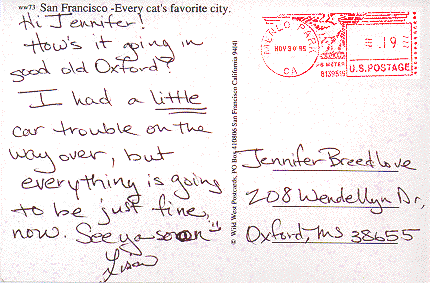 ww73 San Francisco -Every cat's favorite city.
Hi Jennifer!
How's it going in
good old Oxford?
I had a little
car trouble on the
way over, but
everything is going
to be just fine,
now. See ya soon
Lisa
© Wild West Postcards, PO Box 410806 San Francisco California 94141
MENLO PARK
NOV 30 95
CA
METER
.19
U.S. POSTAGE
Jennifer Breedlove
208 Wendellyn Dr,
Oxford, Ms 38655